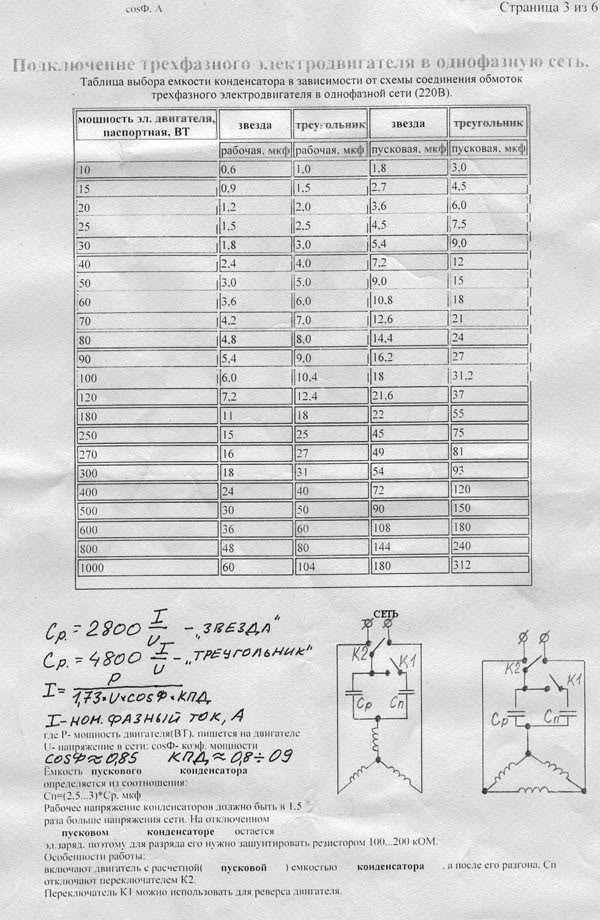 cosФ. А
Страница 3 из 6
Подключение трехфазного электродвигателя в однофазную сеть.
Таблица выбора емкости конденсатора в зависимости от схемы соединения обмоток
трехфазного электродвигателя в однофазной сети (220В).
мощность эл. двигателя, паспортная, ВТ звезда треугольник звезда треугольник
рабочая, мкф рабочая, мкф пусковая, мкф пусковая, мкф
10 0,6 1,0 1,8 3,0
15 0,9 1,5 2,7 4,5
20 1,2 2,0 3,6 6,0
25 1,5 2,5 4,5 7,5
30 1,8 3,0 5,4 9,0
40 2,4 4,0 7,2 12
50 3,0 5,0 9,0 15
60 3,6 6,0 10,8 18
70 4,2 7,0 12,6 21
80 4,8 8,0 14,4 24
90 5,4 9,0 16,2 27
100 6,0 10,4 18 31,2
120 7,2 12,4 21,6 37
180 11 18 22 55
250 15 25 45 75
270 16 27 49 81
300 18 31 54 93
400 24 40 72 120
500 30 50 90 150
600 36 60 108 180
800 48 80 144 240
1000 60 104 180 312
Ср.=2800 I/U - „ЗВЕЗДА"
Ср.=4800 I/U - „ТРЕУГОЛЬНИК"
I= P/1,73×U×cosФ×КПД
I-НОМ. ФАЗНЫЙ ТОК, А
где Р- мощность двигателя(ВТ). пишется на двигателе
U- напряжение в сети: cosФ- коэф. мощности
cosФ≈0,85 КПД≈0,8÷09
Емкость пускового конденсатора
определяется из соотношения:
Сп=(2.5...3)*Ср. мкф
Рабочее напряжение конденсаторов должно быть в 1.5
раза больше напряжения сети. На отключенном
пусковом конденсаторе остается
эл.заряд. поэтому для разряда его нужно зашунтировать резистором 100...200 кОМ.
Особенности работы:
включают двигатель с расчетной( пусковой ) емкостью конденсатора . а после его разгона. Сп
отключают переключателем К2.
Переключатель К1 можно использовать для реверса двигателя.
СЕТЬ
К2
К1
Ср
Сп
К2
К1
Ср
Сп